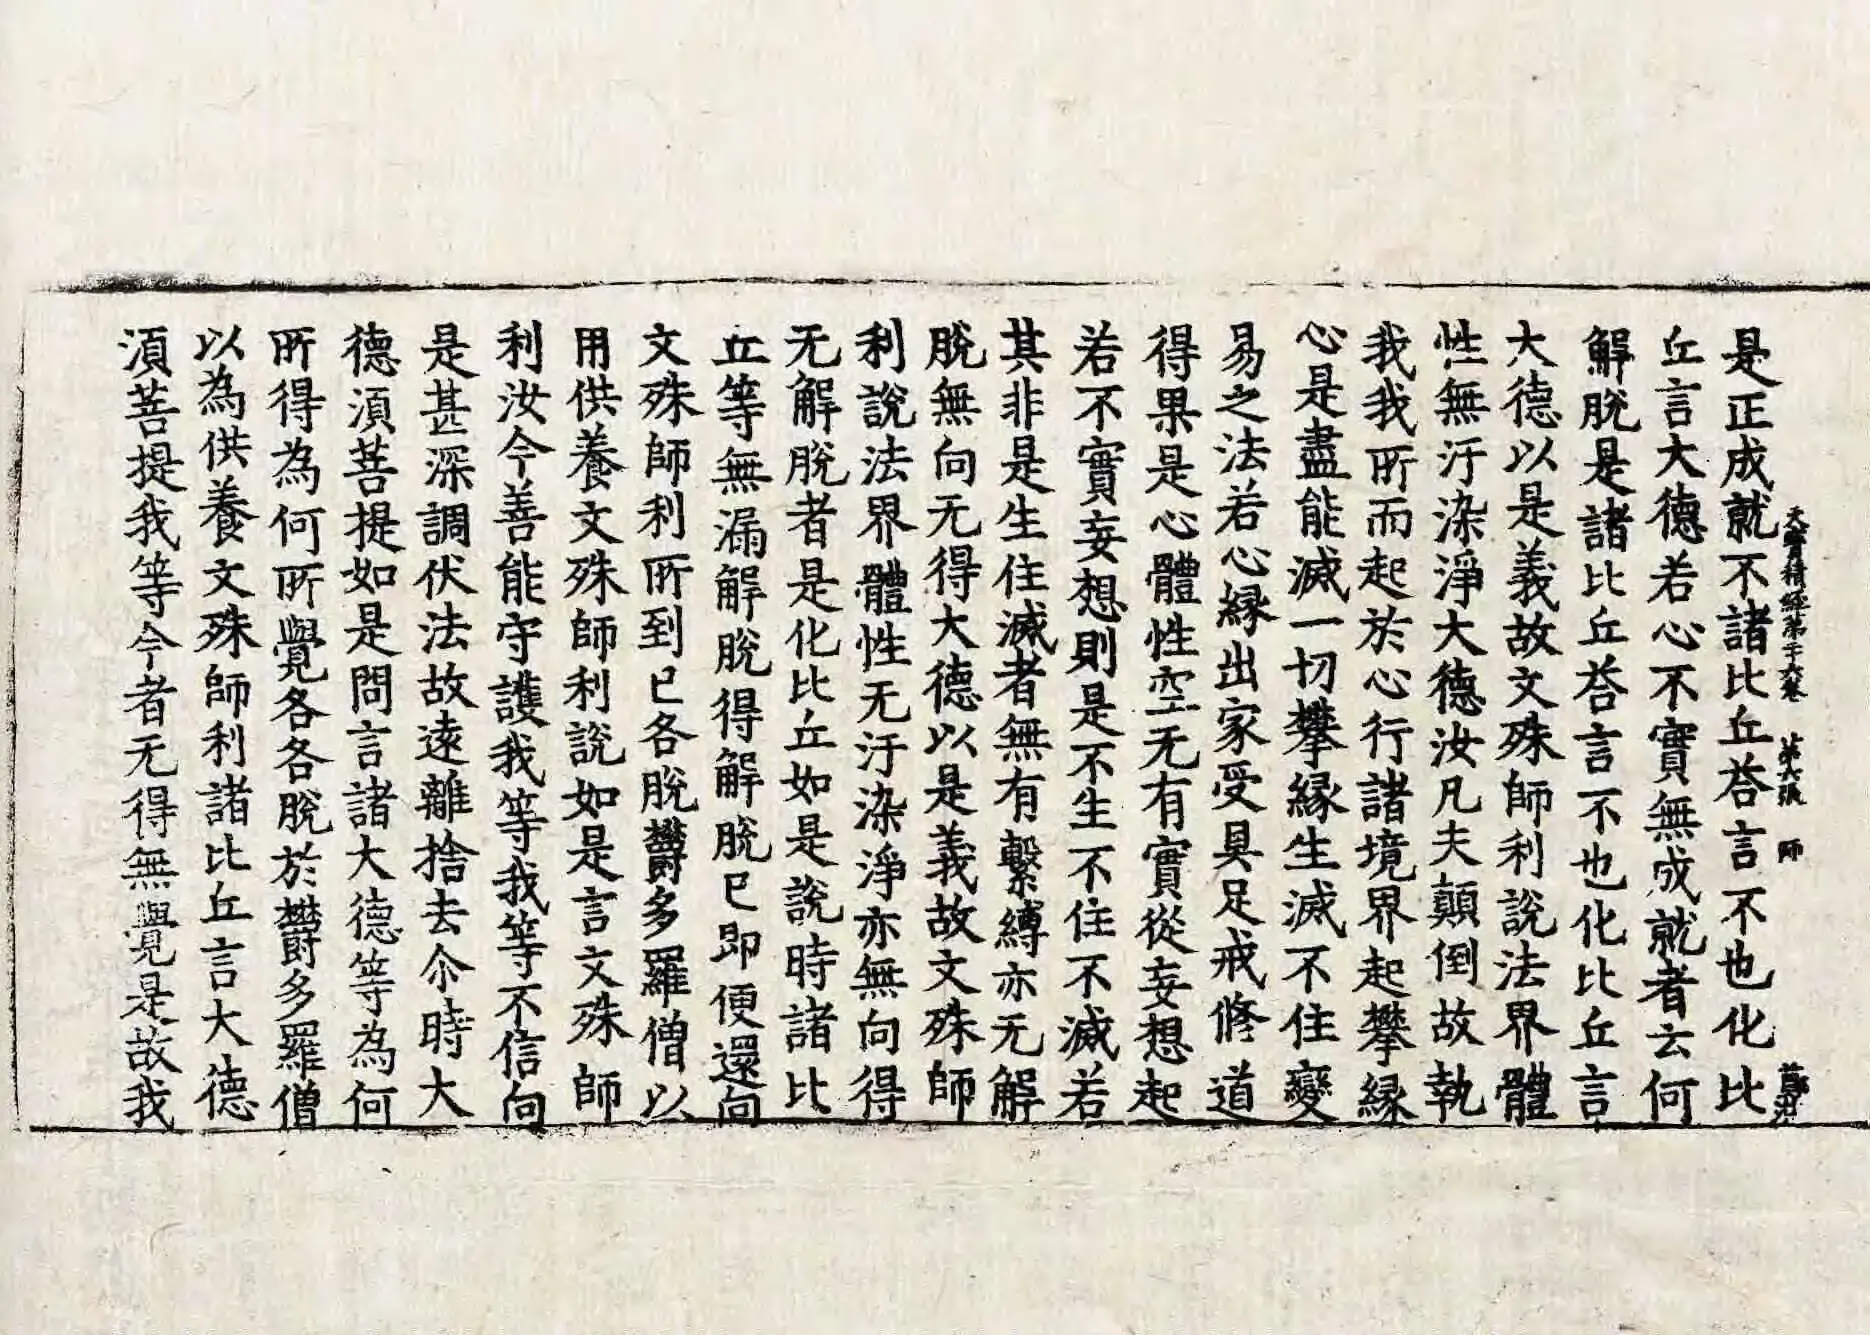 大寶積經第二十六卷 第六張 師
是正成就不諸比丘荅言不也化比
丘言大德若心不實無成就者云何
解脫是諸比丘荅言不也化比丘言
大德以是義故文殊師利說法界體
性無汙染淨大德汝凡夫顛倒故執
我我所而起於心行諸境界起攀縁
心是盡能滅一切攀縁生滅不住變
易之法若心縁出家受具足戒修道
得果是心體性空无有實從妄想起
若不實妄想則是不生不住不滅若
其非是生住滅者無有繫縛亦无解
脫無向无得大德以是義故文殊師
利說法界體性无汙染淨亦無向得
无解脫者是化比丘如是說時諸比
丘等無漏解脫得解脫已即便還向
文殊師利所到已各脫欝多羅僧以
用供養文殊師利說如是言文殊師
利汝今善能守護我等我等不信向
是甚深調伏法故遠離捨去尒時大
德湏菩提如是問言諸大德等為何
所得為何所覺各各脫於欝多羅僧
以為供養文殊師利諸比丘言大德
湏菩提我等今者无得無覺是故我